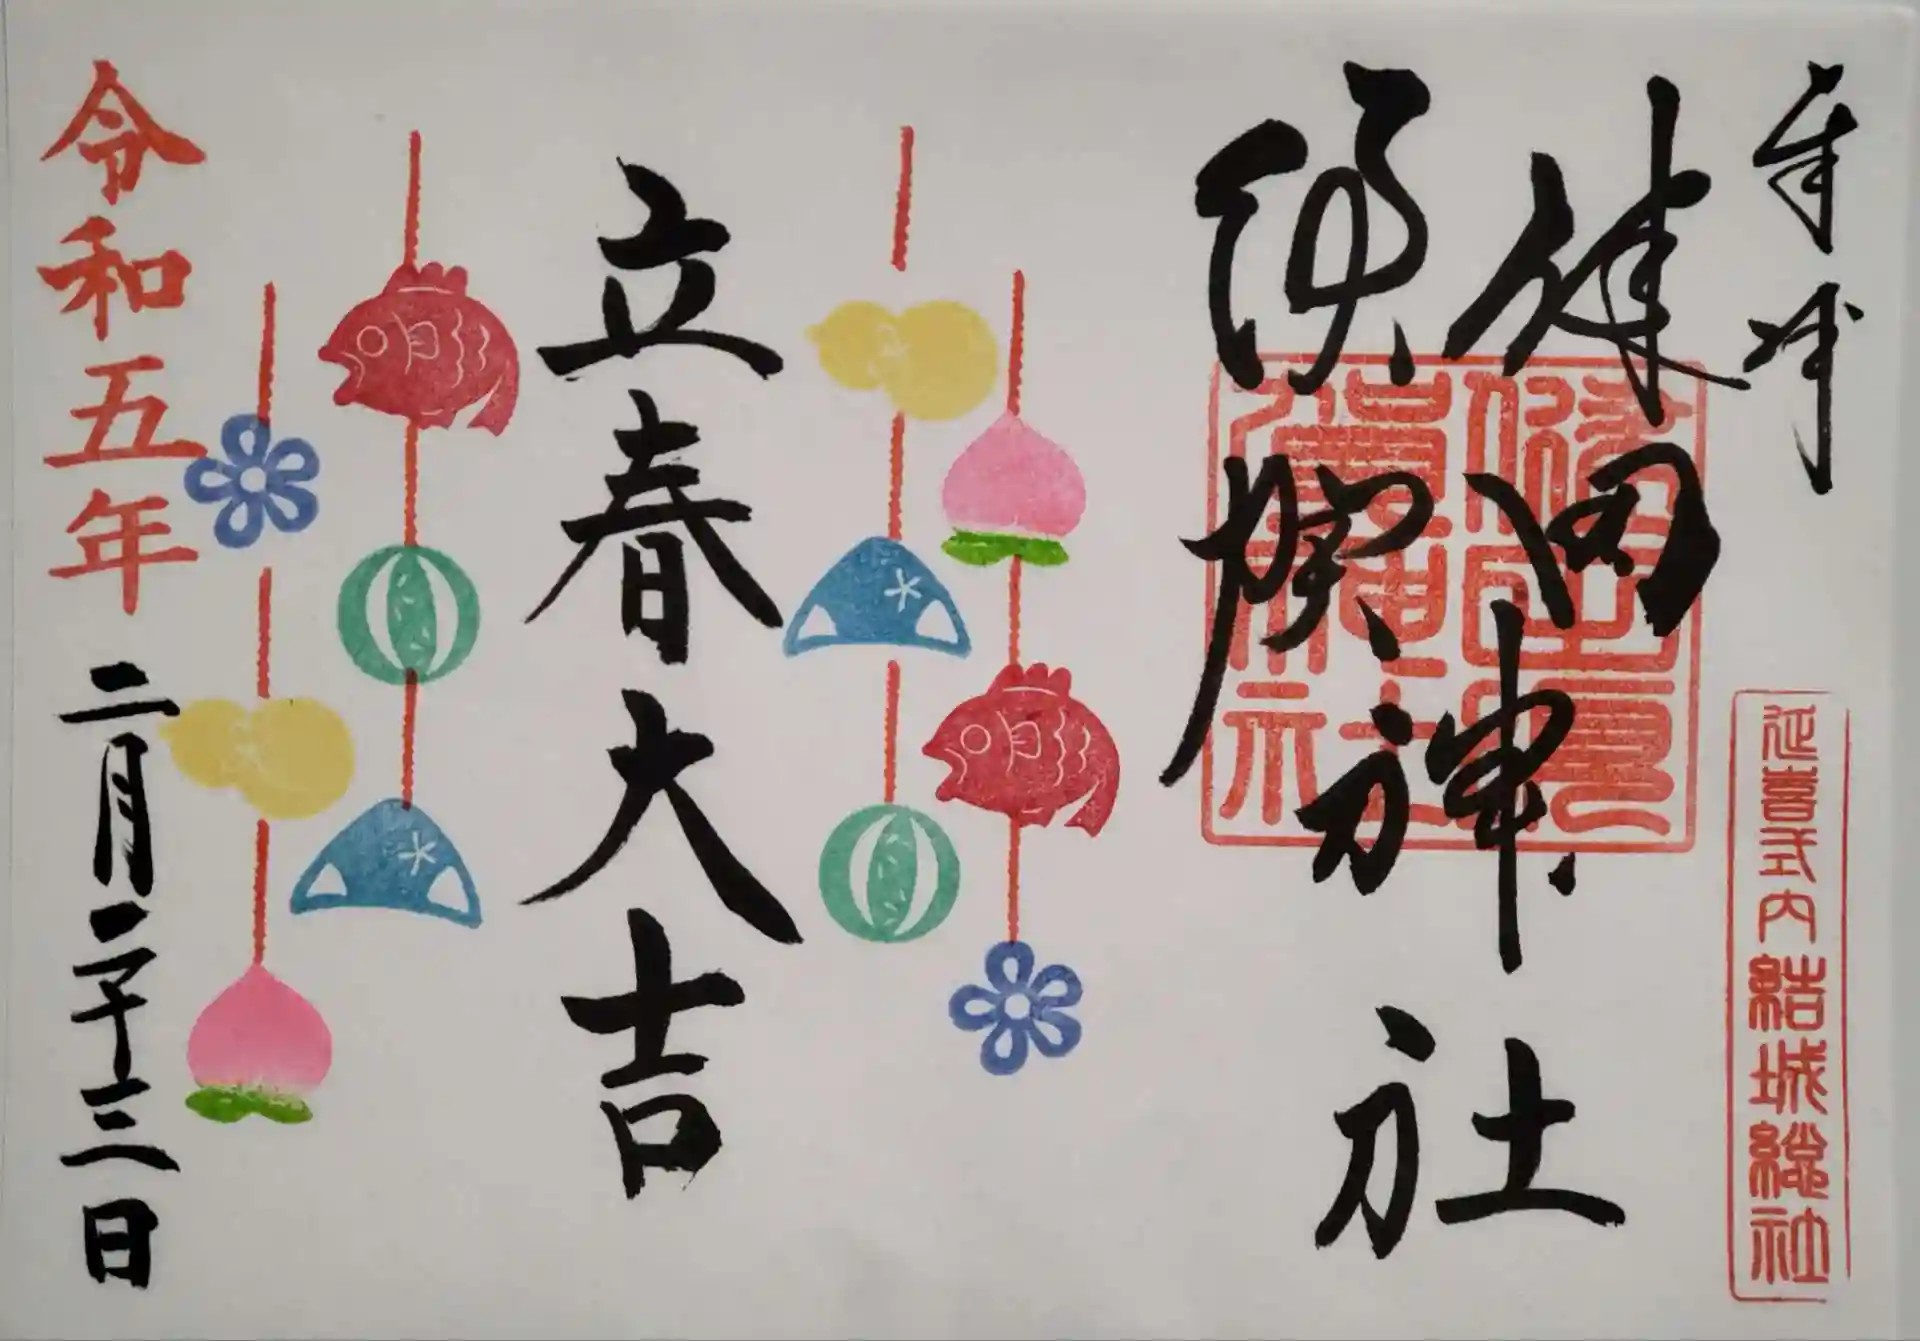 奉拝
延喜式内結城總社
健田
須賀
神社
立春大吉
令和五年二月二十三日